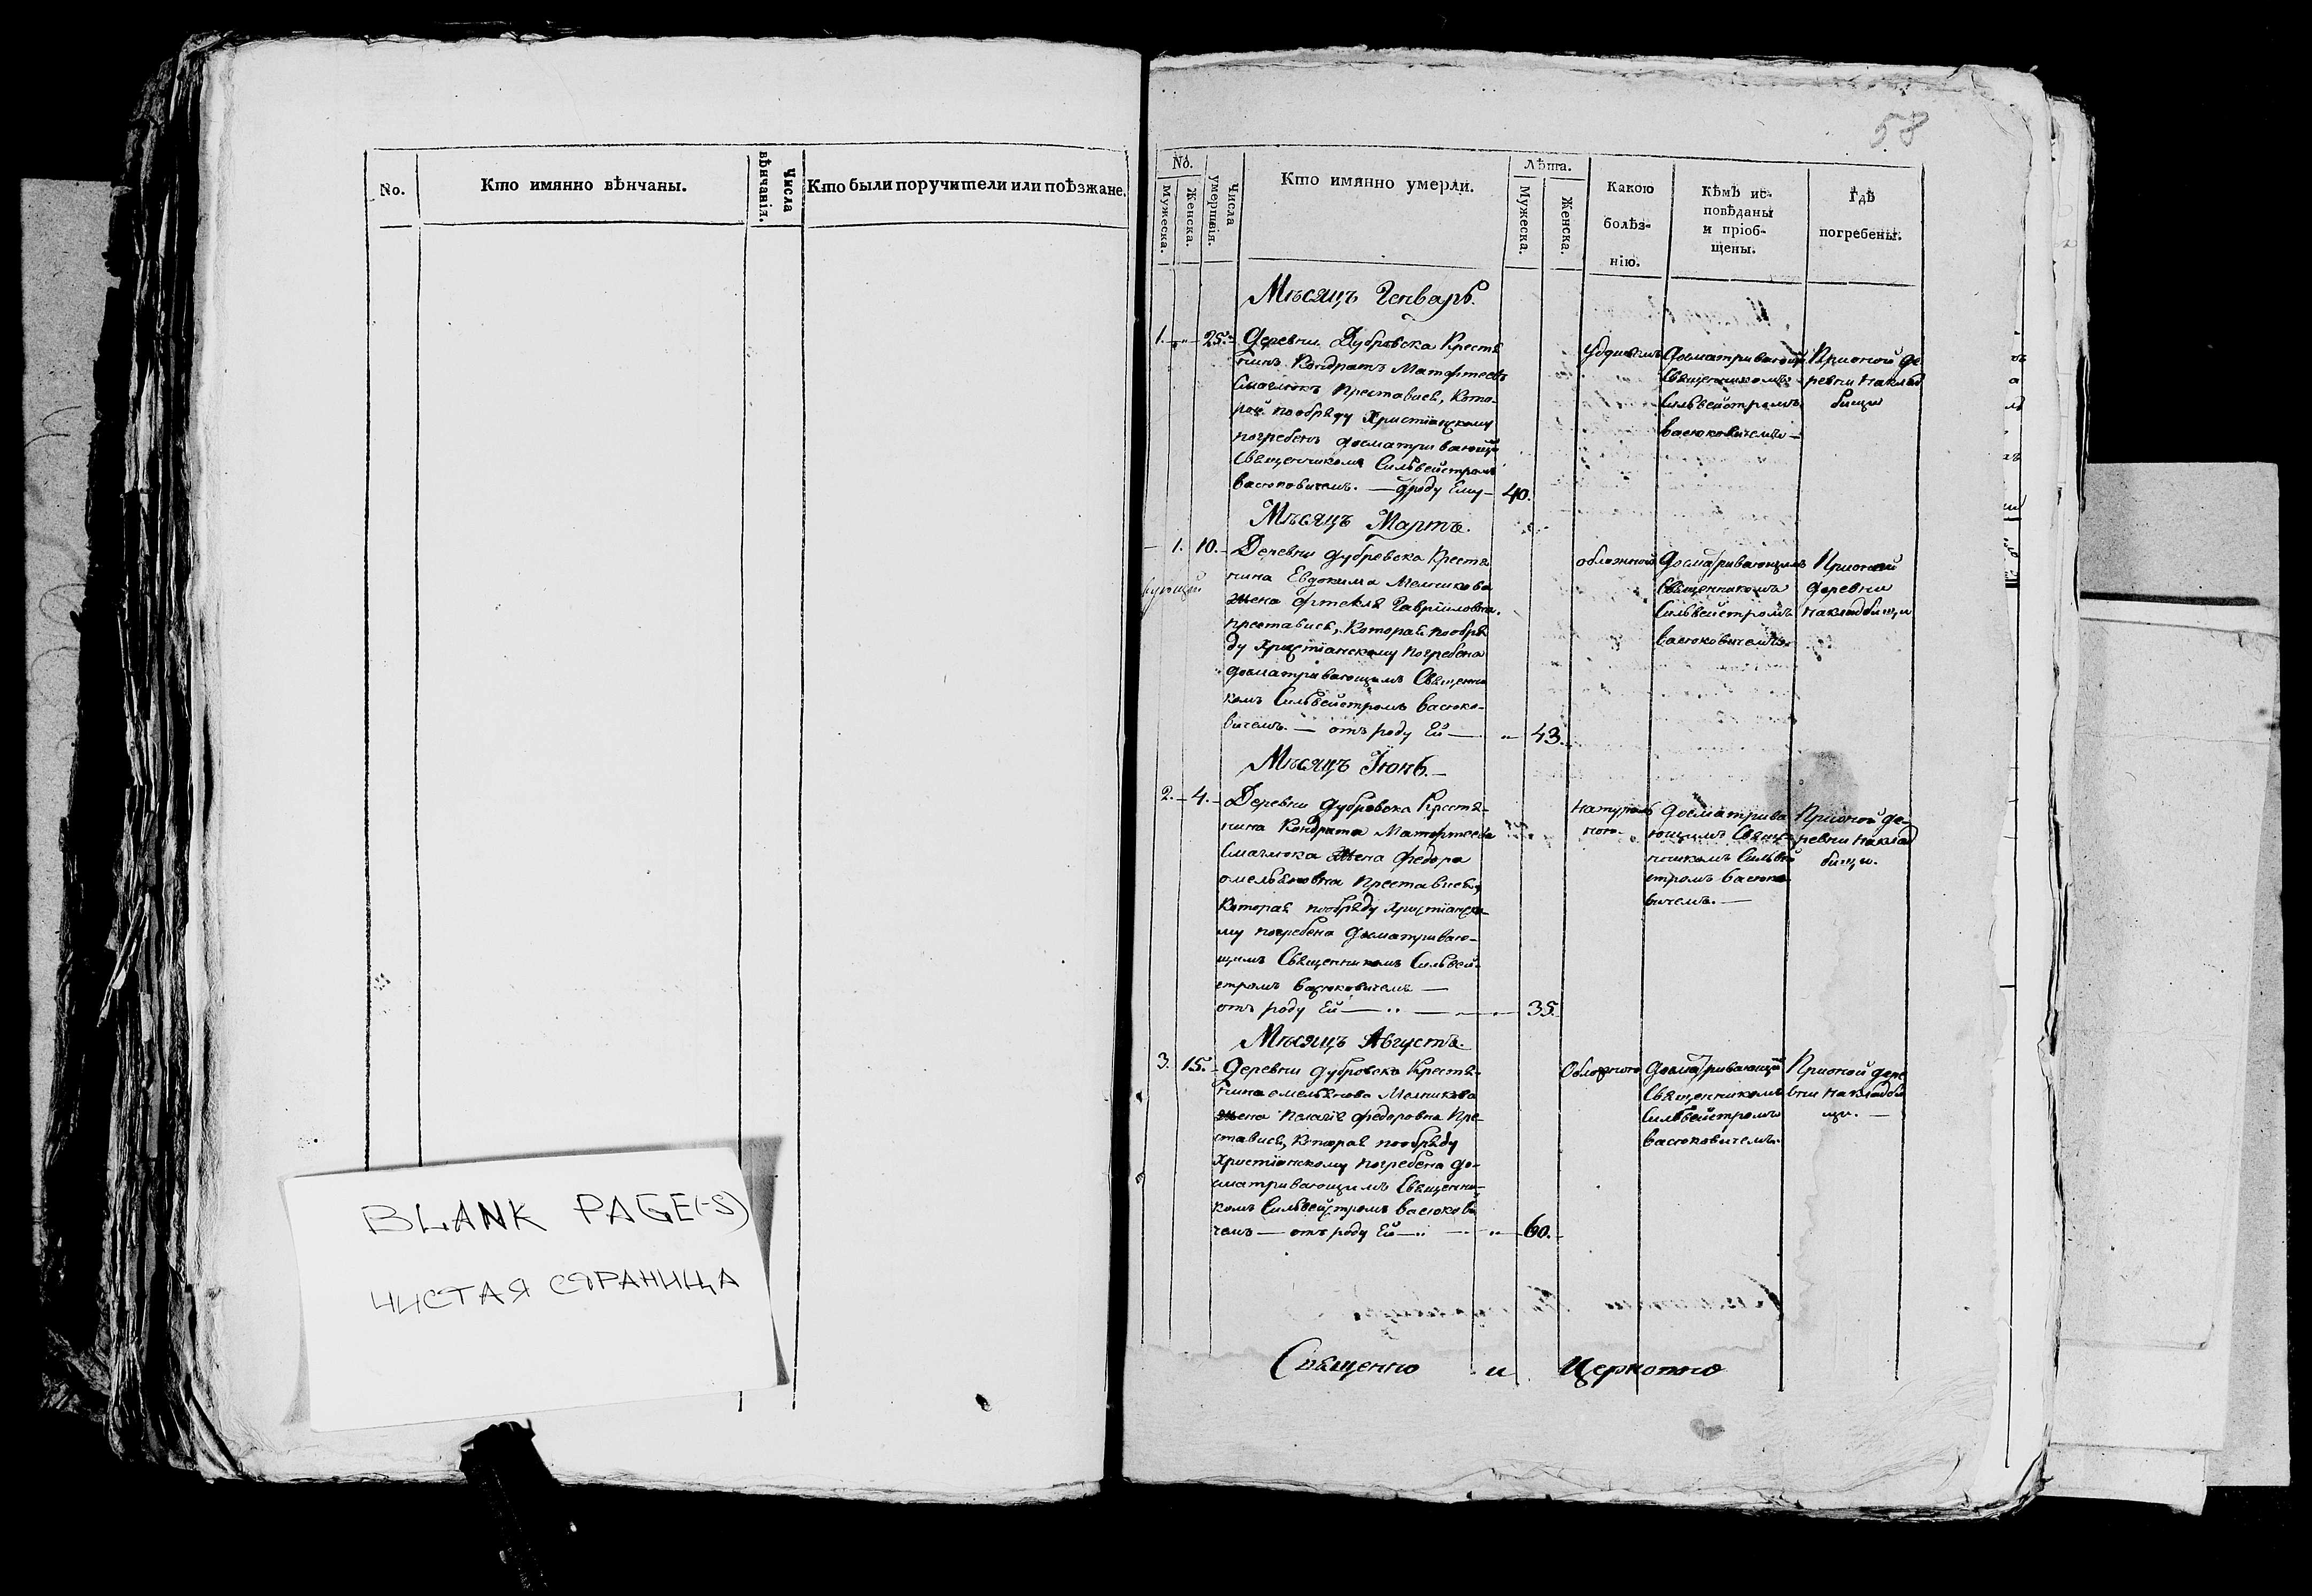 No.
Кто имянно вѣнчаны.
Числа вѣнчанія.
Кто были поручители или поѣзжане.
BLANK PAGE(-S)
ЧИСТАЯ СТРАНИЦА
58
No.
Мужеска.
Женска.
Числа умершвія.
Кто имянно умерли.
Лѣта.
Мужеска.
Женска.
Какою болѣз-
нію.
Кѣмъ ис-
повѣданы
и пріоб-
щены.
Гдѣ
погребены.
Мѣсяцъ Генварь.
1. 25. Деревни Дубровска Крестя
нинъ Кондратъ Матфеевъ
Смаглюкъ преставися, Кото-
рой пообряду Христіанскому
погребенъ досматривающимъ
Священникомъ Сильвейстромъ
Васюковичемъ. — Ѿроду Ему — 40.
досматривающимъ
Священникомъ
Сильвейстромъ
Васюковичемъ —
Прионой де
ревни наклад
бищи
Мѣсяцъ Мартъ.
1. 10. Деревни дубровска Крестя
нина Евдокима Мельникова
жена Гавриловна
преставися, Которая пообря
ду Христіанскому погребена
досматривающимъ Священни
комъ Сильвейстромъ Васюко-
вичемъ. — отъ роду Ей — 43.
обложной
досматривающимъ
Священникомъ
Сильвейстромъ
Васюковичемъ.
Прионой
деревни
накладбищи
Мѣсяцъ Іюнь. —
2. 4. Деревни дубровска Крестя-
нина Кондрата Матфеева
Смаглюка жена Федора
омельяновна преставися,
Которая пообряду Христіанско-
му погребена досматриваю-
щимъ Священникомъ Сильвей-
стромъ Васюковичемъ —
отъ роду Ей — 35.
натураль
ною.
досматрива
ющимъ Свяще
нникомъ Сильвей
стромъ Васюко
вичемъ. —
Прионой де-
ревни наклад
бищи.
Мѣсяцъ Августъ.
3. 15. Деревни дубровска Крестя-
нина омельянова Мельникова
жена Пелагія федоровна Пре-
ставися, Которая пообряду
Христіанскому погребена до-
сматривающимъ Священни-
комъ Сильвейстромъ Васюкови
чемъ — отъ роду Ей — 60.
Обложною
досматривающимъ
Священникомъ
Сильвейстромъ
Васюковичемъ.
Прионой дере
вни накладби
щи. —
Священно и Церковно